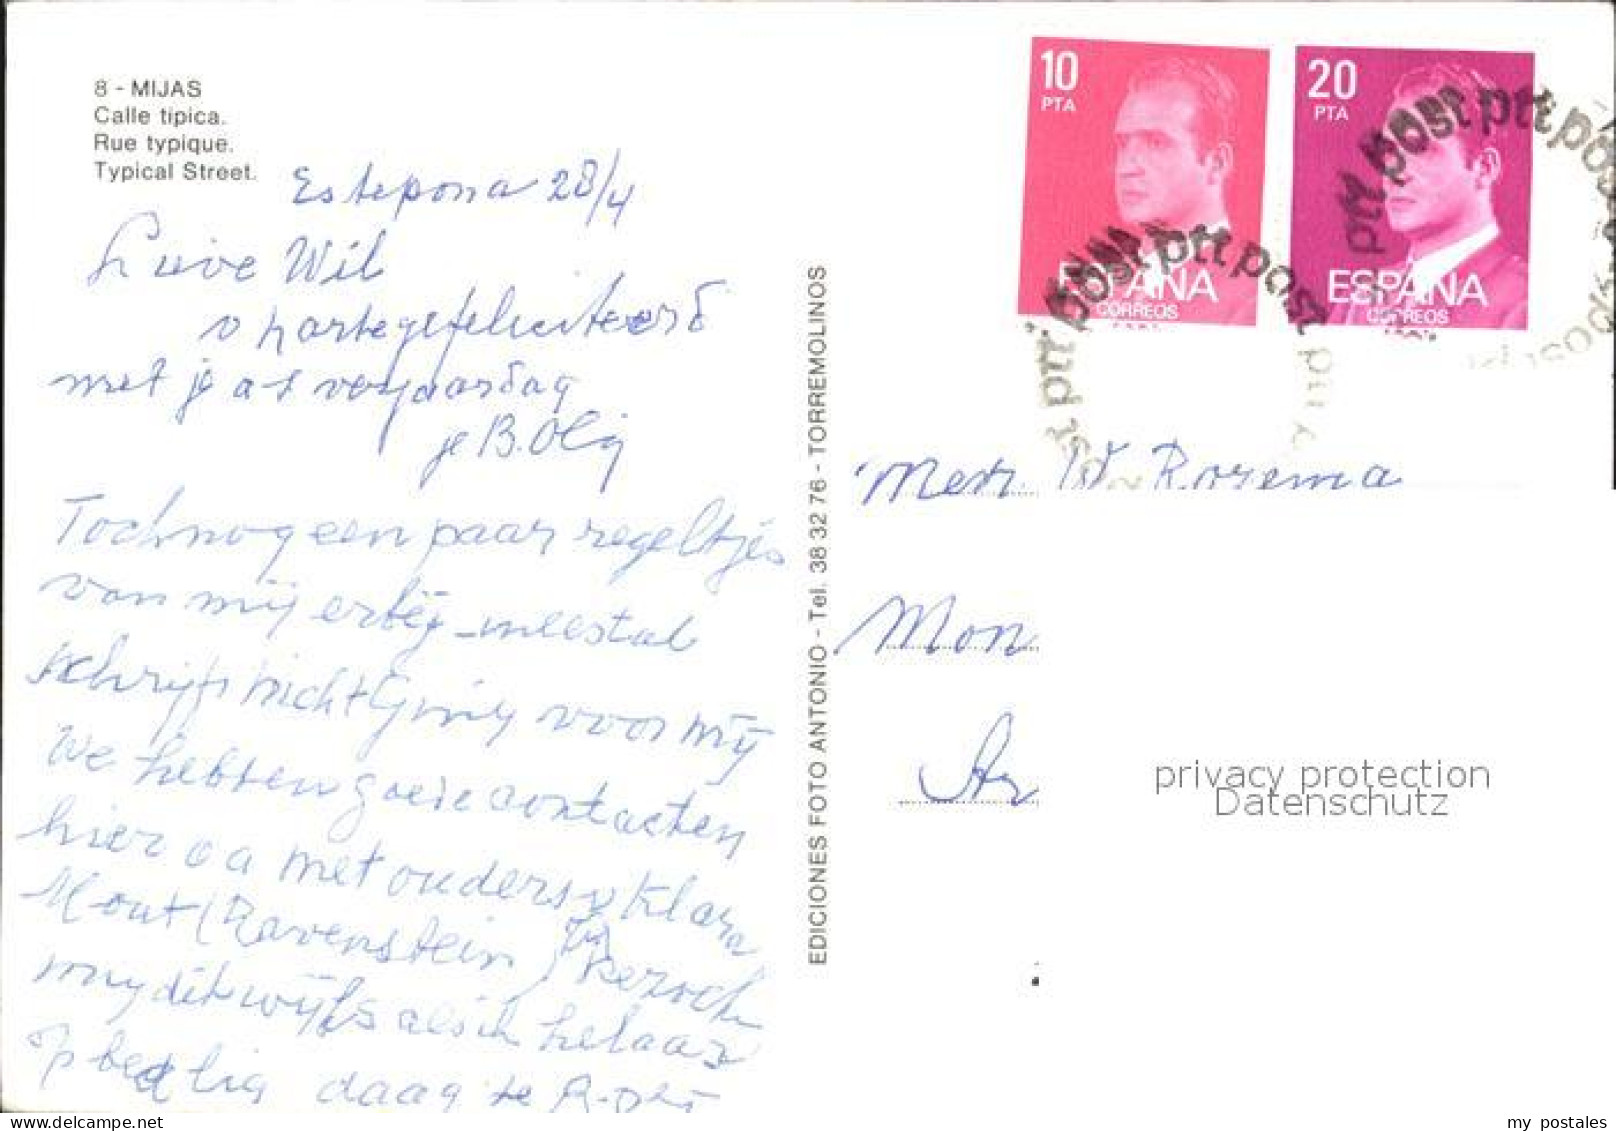 8 - MIJAS
Calle tipica.
Rue typique.
Typical Street.
Estepona 28/4
Lieve Wil
v harte gefeliciteerd
met je as verjaardag
je B. Olij
Toch nog een paar regeltjes
van mij erbij - meestal
schrijft
voor mij
We hebben goede contacten
hier oa met ouders v Klara
Mout (Ravenstein)
bezoek
wijfs als ik helaas
op bed lig daag te
EDICIONES FOTO ANTONIO - Tel. 38 32 76 - TORREMOLINOS
10
PTA
ESPAÑA
CORREOS
20
PTA
ESPAÑA
CORREOS
ptt post ptt post
ptt post ptt post
Mevr. W Rozema
Mon
Ar
privacy protection
Datenschutz
my postales